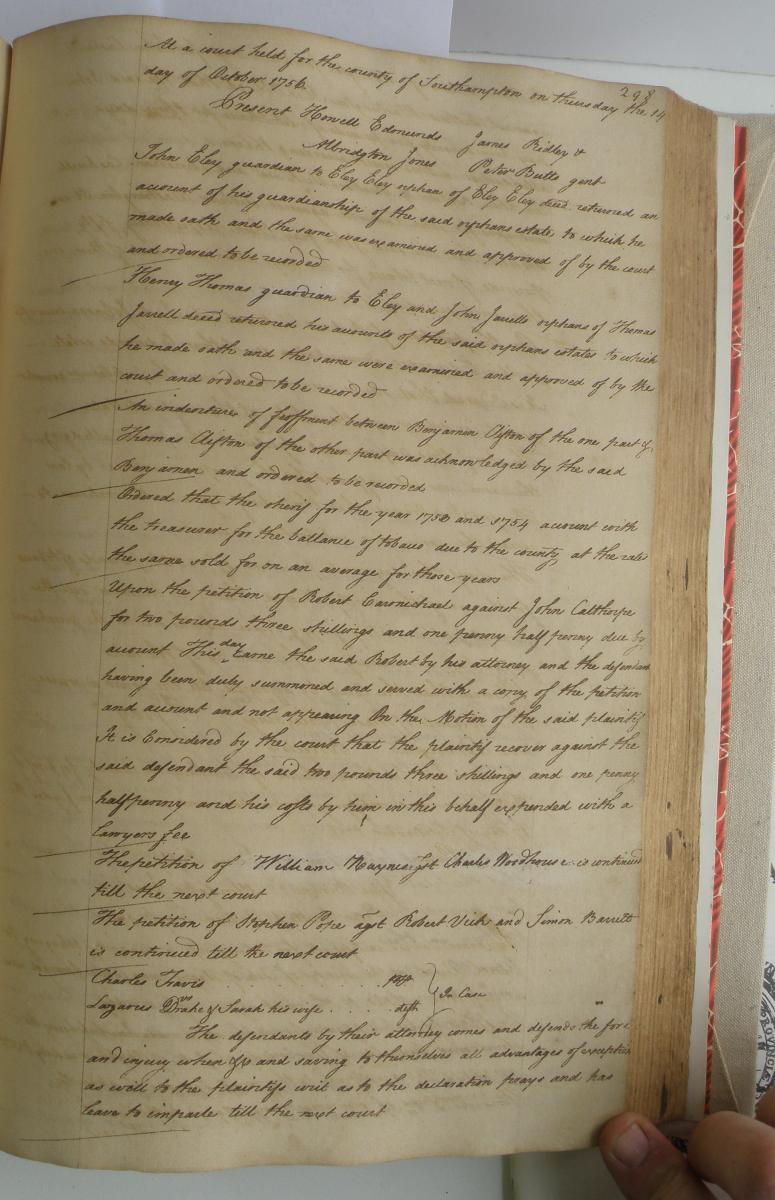 298
At a court held for the county of Southampton on thursday the 14
day of October 1756
Present Howell Edmunds James Ridley &
Albridgton Jones Peter Butts gent
John Eley guardian to Eley Eley orphan of Eley Eley deced returned an
account of his guardianship of the said orphans estate to which he
made oath and the same was examined and approved of by the court
and ordered to be recorded
Henry Thomas guardian to Eley and John Jarrells orphans of Thomas
Jarrell deced returned his accounts of the said orphans estates to which
he made oath and the same were examined and approved of by the
court and ordered to be recorded
An indenture of feoffment between Benjamin Clifton of the one part &
Thomas Clifton of the other part was acknowledged by the said
Benjamen and ordered to be recorded
Ordered that the sherif for the year 1753 and 1754 account with
the treasurer for the ballance of tobaco due to the county at the rate
the same sold for on an average for those years
Upon the petition of Robert Carmichael against John Calthorpe
for two pounds three shillings and one penny half penny due by
account This day came the said Robert by his attorney and the defendant
having been duly summoned and served with a copy of the petition
and account and not appearing On the Motion of the said plaintif
It is Considered by the court that the plaintif recover against the
said defendant the said two pounds three shillings and one penny
halfpenny and his costs by him in this behalf expended with a
Lawyers fee
The petition of William Haynes agst Charles Woodhouse is continued
till the next court
The petition of Stephen Pope agst Robert Vick and Simon Barrett
is continued till the next court
Charles Travis pltf
Lazarus Drake & Sarah his wife deft In Case
The defendants by their attorney comes and defends the force
and injury when &c and saving to themselves all advantages of exception
as well to the plaintifs writ as to the declaration prays and has
leave to imparle till the next court